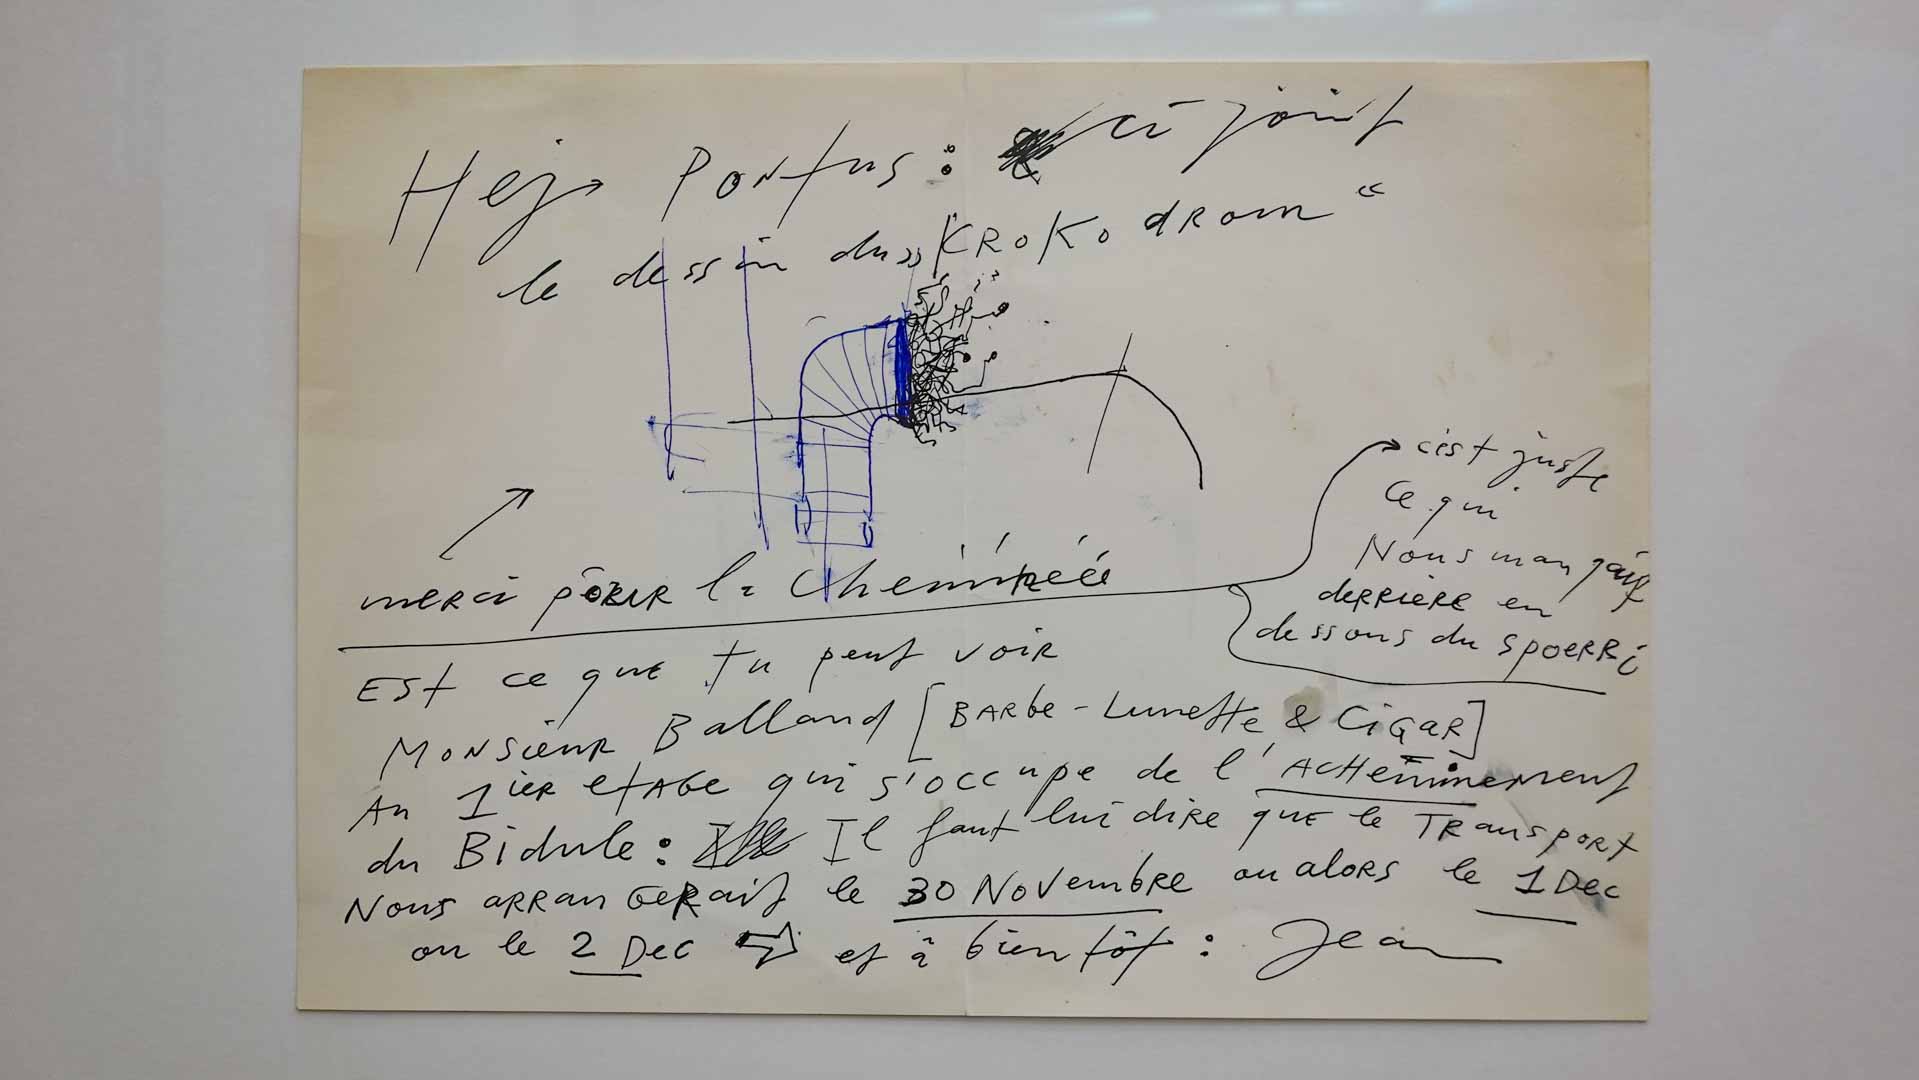 Hej Pontus: ci joint
le dessin du „KROKOdROM“
merci pour la cheminée
c'est juste
ce qui
Nous manquait
derrière en
dessous du spoerri
Est ce que tu peut voir
Monsieur Balland [BARbe - Lunette & CiGAR]
Au 1ier etAGe qui s'occupe de l'ACHeminement
du Bidule: Il faut lui dire que le TRansport
Nous arranGeRait le 30 Novembre ou alors le 1 Dec
ou le 2 Dec ⇨ et à bientôt: Jean